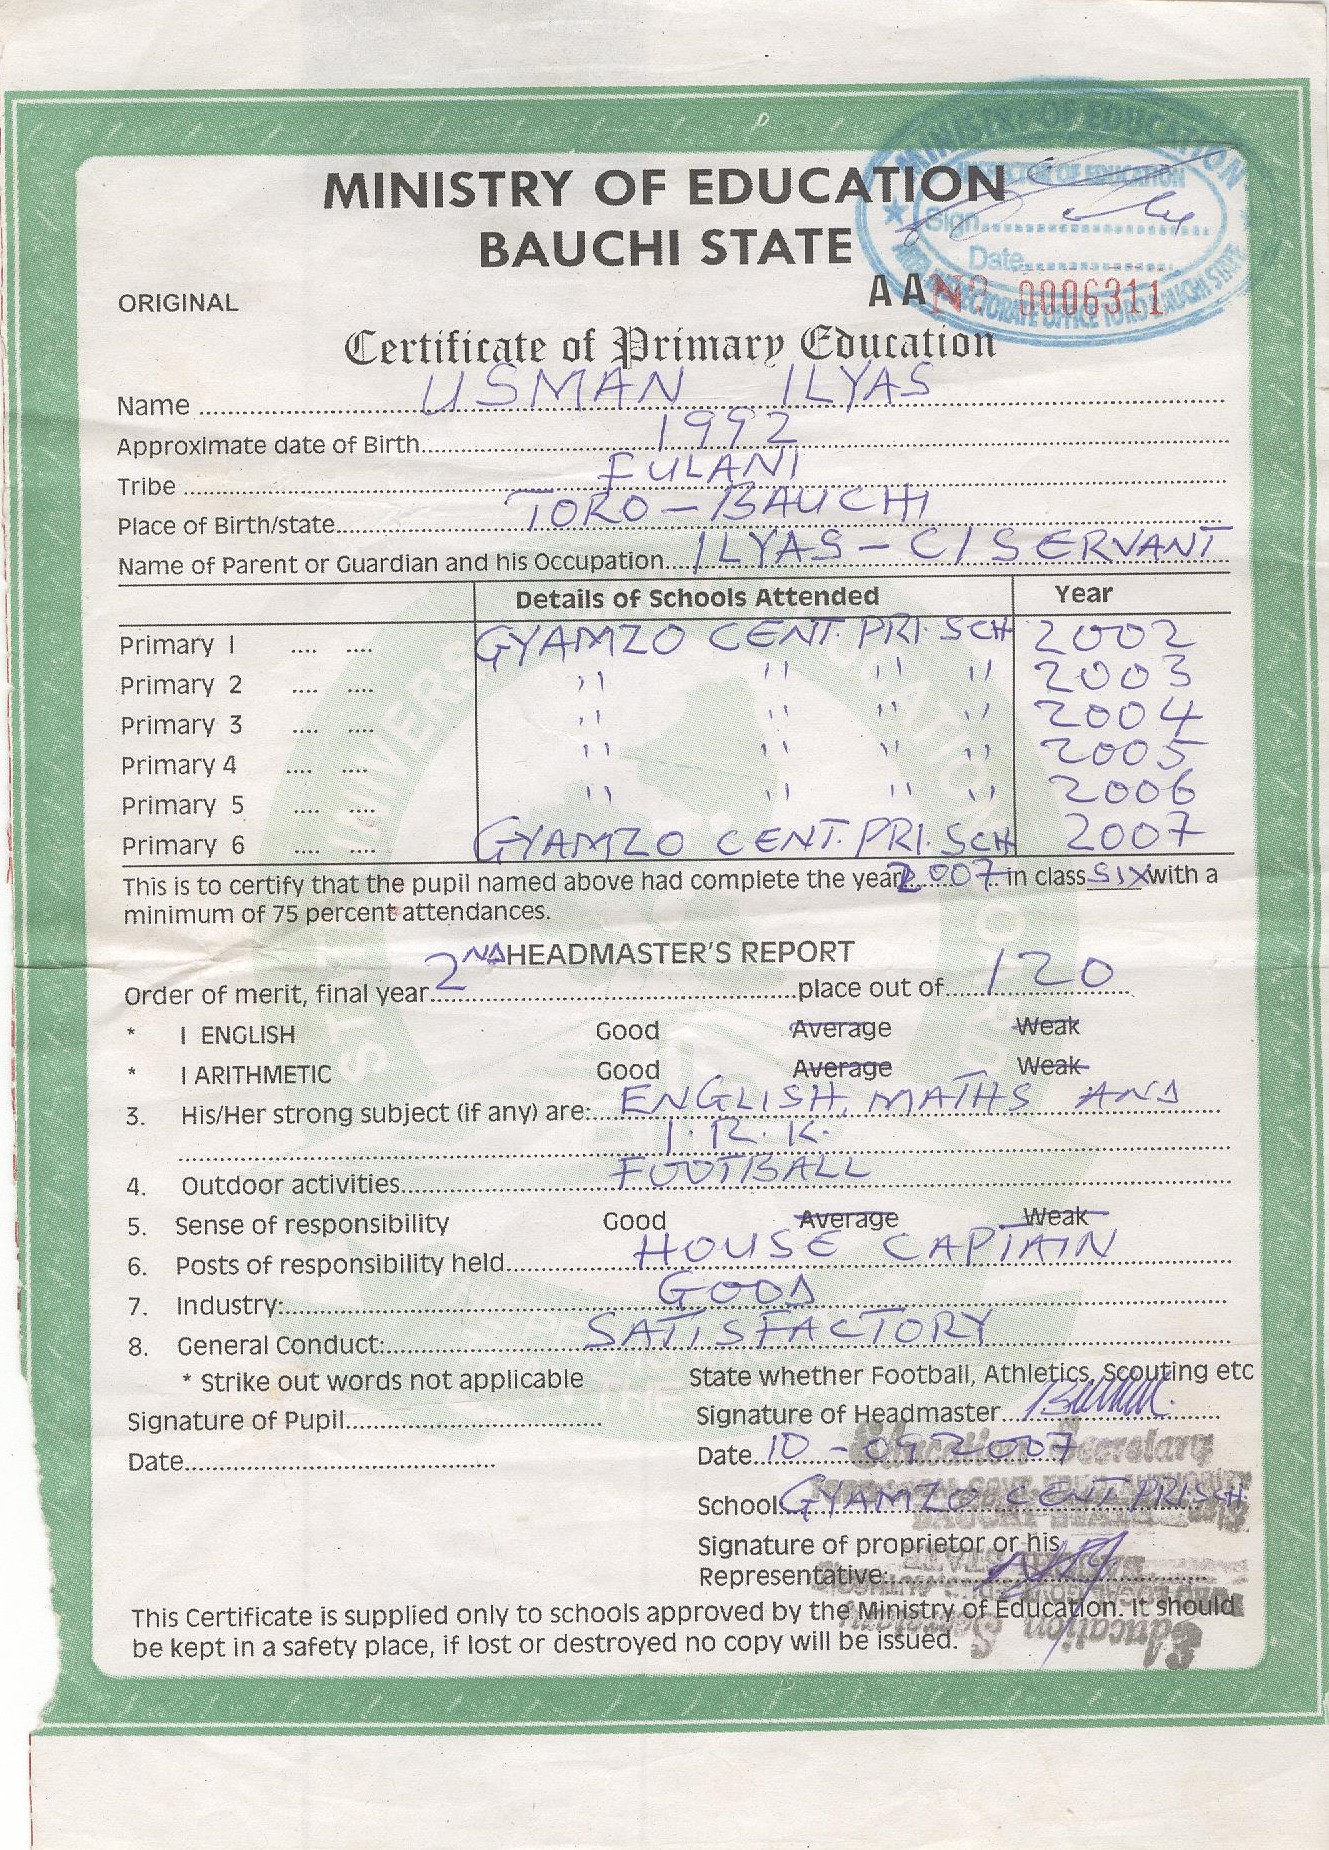 MINISTRY OF EDUCATION
BAUCHI STATE
MINISTRY OF EDUCATION
OF EDUCATION
Sign
Date
ORIGINAL
AA No. 0006311
Certificate of Primary Education
Name USMAN ILYAS
Approximate date of Birth 1992
Tribe FULANI
Place of Birth/state TORO - BAUCHI
Name of Parent or Guardian and his Occupation ILYAS - C/SERVANT
Details of Schools Attended Year
Primary 1 .... .... GYAMZO CENT. PRI. SCH 2002
Primary 2 .... .... " " " " 2003
Primary 3 .... .... " " " " 2004
Primary 4 .... .... " " " " 2005
Primary 5 .... .... " " " " 2006
Primary 6 .... .... GYAMZO CENT. PRI. SCH 2007
This is to certify that the pupil named above had complete the year 2007 in class SIX with a
minimum of 75 percent attendances.
HEADMASTER'S REPORT
Order of merit, final year 2ND place out of 120
* I ENGLISH Good Average Weak
* I ARITHMETIC Good Average Weak
3. His/Her strong subject (if any) are: ENGLISH, MATHS AND
I.R.K.
4. Outdoor activities FOOTBALL
5. Sense of responsibility Good Average Weak
6. Posts of responsibility held HOUSE CAPTAIN
7. Industry: GOOD
8. General Conduct: SATISFACTORY
* Strike out words not applicable State whether Football, Athletics, Scouting etc
Signature of Pupil Signature of Headmaster
Date Date 10-09 2007
Education Secretary
School GYAMZO CENT PRI SCH
Signature of proprietor or his
Representative
BAUCHI STATE
Education Secretary
This Certificate is supplied only to schools approved by the Ministry of Education. it should
be kept in a safety place, if lost or destroyed no copy will be issued.